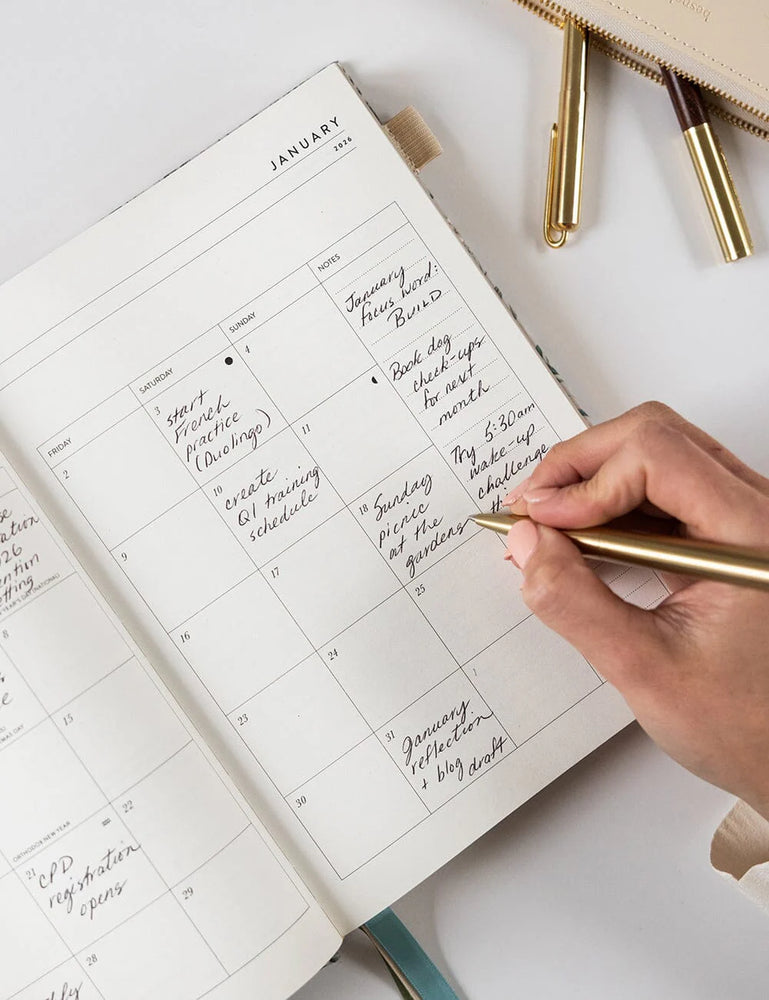 JANUARY
2026
FRIDAY
SATURDAY
SUNDAY
NOTES
2
3
start
French
practice
(Duolingo)
4
January
focus word:
BUILD
9
10
create
Q1 training
schedule
11
Book dog
check-ups
for next
month
16
17
18
Sunday
picnic
at the
gardens
Try 5:30am
wake-up
challenge
23
24
25
30
31
January
reflection
+ blog draft
1
026
8
15
ORTHODOX NEW YEAR
21
CPD
registration
opens
22
28
29